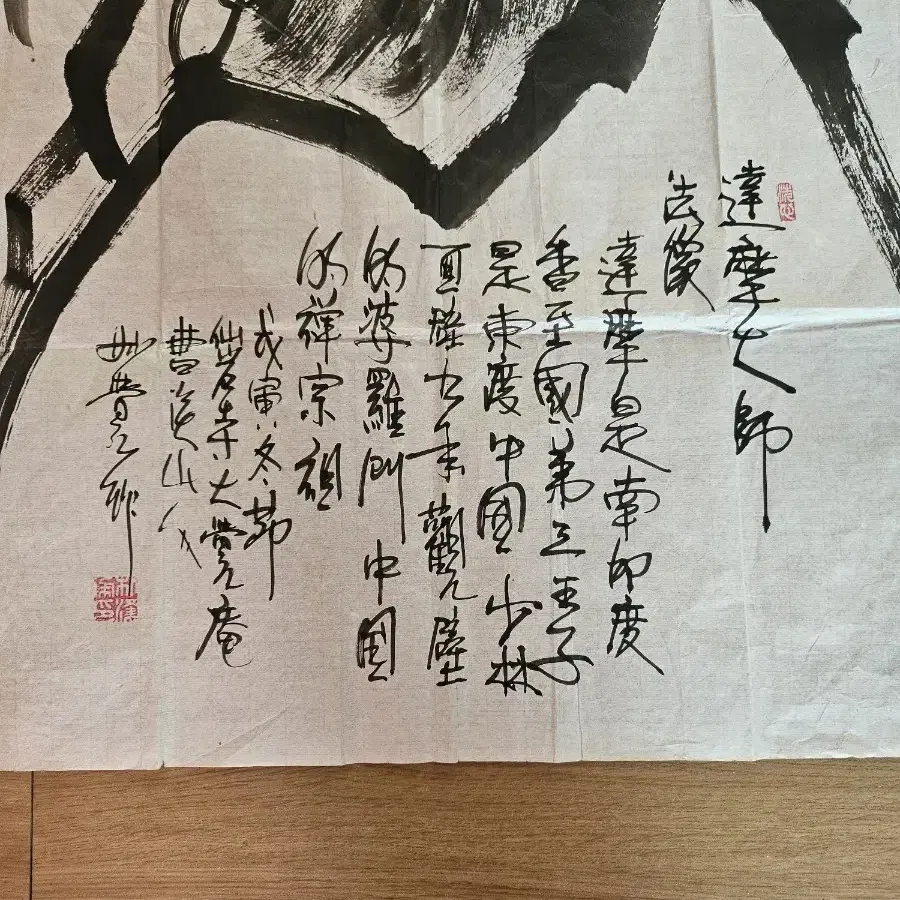 達摩大師
法像
達摩是南印度
香至國第三王子
是東度中國少林
面壁九年觀壁
的婆羅門中國
的禪宗祖
戊寅冬節
仙岩寺大覺庵
曹溪山人
如